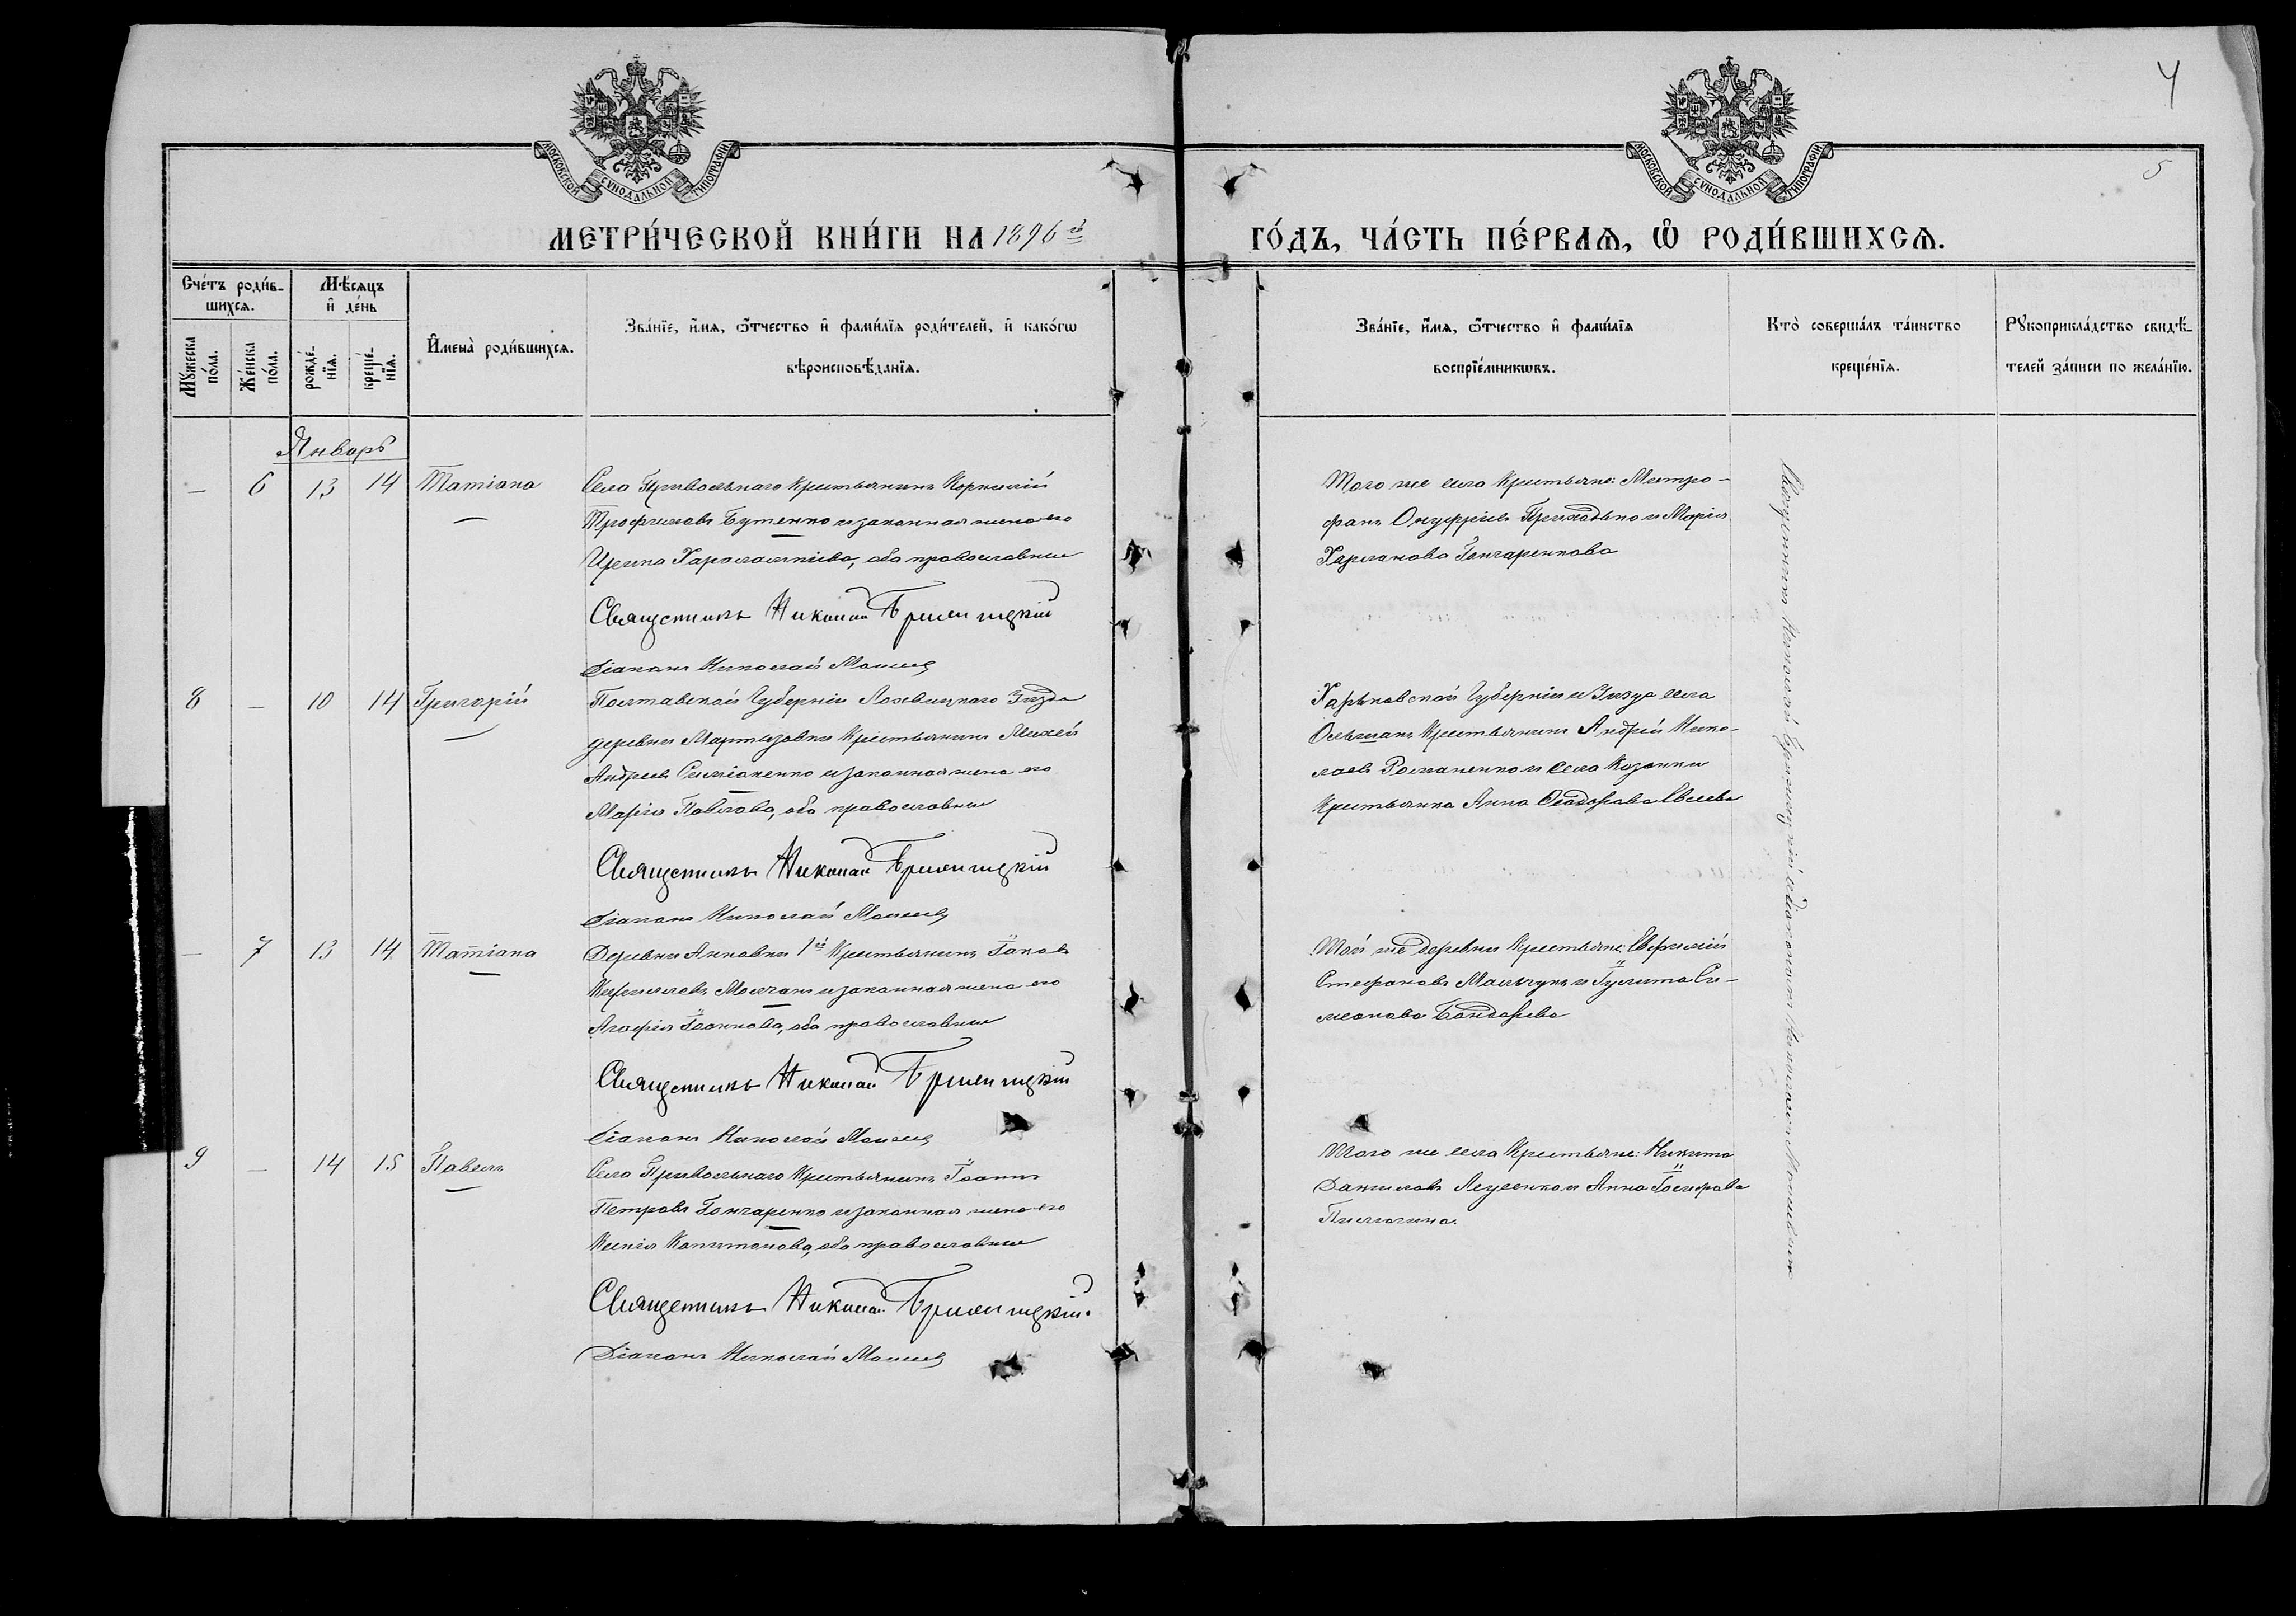 4
5
МОСКОВСКОЙ СѴНОДАЛЬНОЙ ТИПОГРАФІИ
МОСКОВСКОЙ СѴНОДАЛЬНОЙ ТИПОГРАФІИ
МЕТРИ́ЧЕСКОЙ КНИ́ГИ НА 1896 й
ГО́ДЪ, ЧА́СТЬ ПЕ́РВАѦ, Ѽ РОДИ́ВШИХСѦ.
Сче́тъ роди́в-
шихсѧ.
Мꙋ́жеска по́ла.
Же́нска по́ла.
Мѣ́сѧцъ
и҆ де́нь
рожде́-
нїѧ.
креще́-
нїѧ.
И҆мена̀ роди́вшихсѧ.
Зва́нїе, и҆́мѧ, ѻ҆́тчество и҆ фами́лїѧ роди́телей, и҆ како́гѡ
вѣроисповѣ́данїѧ.
Зва́нїе, и҆́мѧ, ѻ҆́тчество и҆ фами́лїѧ
воспрїе́мникѡвъ.
Кто̀ соверша́лъ та́инство
креще́нїѧ.
Рꙋкоприкла́дство свидѣ́-
телей за́писи по жела́нїю.
Январь
— 6 13 14 Татіана
Села Привольнаго крестьянинъ Корнилій
Трофимовъ Бутенко и законная жена его
Ирина Харалампіева, оба православные
Священникъ Николай
Діаконъ Николай
Того же села крестьяне: Митро-
фанъ Онуфріевъ Приходько и Марія
Гончаренкова
8 — 10 14 Григорій
Полтавской Губерніи Лохвицкаго Уѣзда
деревни крестьянинъ Михей
Андреевъ Симоненко и законная жена его
Марія Павлова, оба православные
Священникъ Николай
Діаконъ Николай
Харьковской Губерніи и Уѣзда села
Ольшанъ крестьянинъ Андрей Нико-
лаевъ Романенко и села Казанки
крестьянка Анна Ѳеодорова
— 7 13 14 Татіана
Деревни Анновки 1й крестьянинъ Іаковъ
Кирилловъ Молчанъ и законная жена его
Агафія Іоаннова, оба православные
Священникъ Николай
Діаконъ Николай
Той же деревни крестьяне: Евфимій
Стефановъ и Іулита Си-
меонова Бондарева
9 — 14 15 Павелъ
Села Привольнаго крестьянинъ Іоаннъ
Петровъ Гончаренко и законная жена его
Ксенія Капитонова, оба православные
Священникъ Николай
Діаконъ Николай
Того же села крестьяне: Никита
Даниловъ и Анна Іосифова